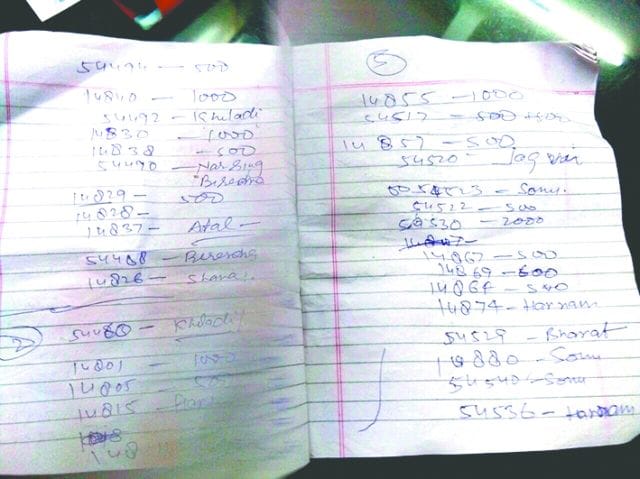 54494 - 500
14840 - 1000
54492 - Khiladi
14830 - 1000
14838 - 500
54490 - Narsing
Birendra
14829 - 500
14828 -
14837 - Atal -
54488 - Birendra
14826 -
54480 - Khiladi
14801 - 1000
14805 - 500
14815 -
148
5
14855 - 1000
54517 - 500
14857 - 500
54520 -
13 - Sonu.
54522 - 500
54530 - 2000
14867 - 500
14869 - 500
14864 - 500
14874 - Harnam
54529 - Bharat
14880 - Sonu
54540 - Sonu
54536 - Harnam